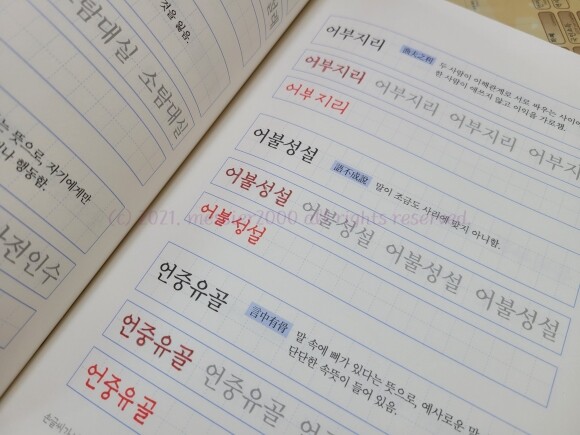 것을 잃음.
소탐대실 소탐대실
는 뜻으로, 자기에게만
나 행동함.
전인수
어부지리 漁夫之利 두 사람이 이해관계로 서로 싸우는 사이에
한 사람이 애쓰지 않고 이익을 가로챔.
어부지리 어부지리 어부지리 어부지
어부지리
어불성설 語不成說 말이 조금도 사리에 맞지 아니함.
어불성설 어불성설 어불성설 어불성설
어불성설
언중유골 言中有骨 말 속에 뼈가 있다는 뜻으로, 예사로운 말
단단한 속뜻이 들어 있음.
언중유골 언중유골 언중
언중유골
손글씨가
(c) 2021. 2000 all rights reserved.